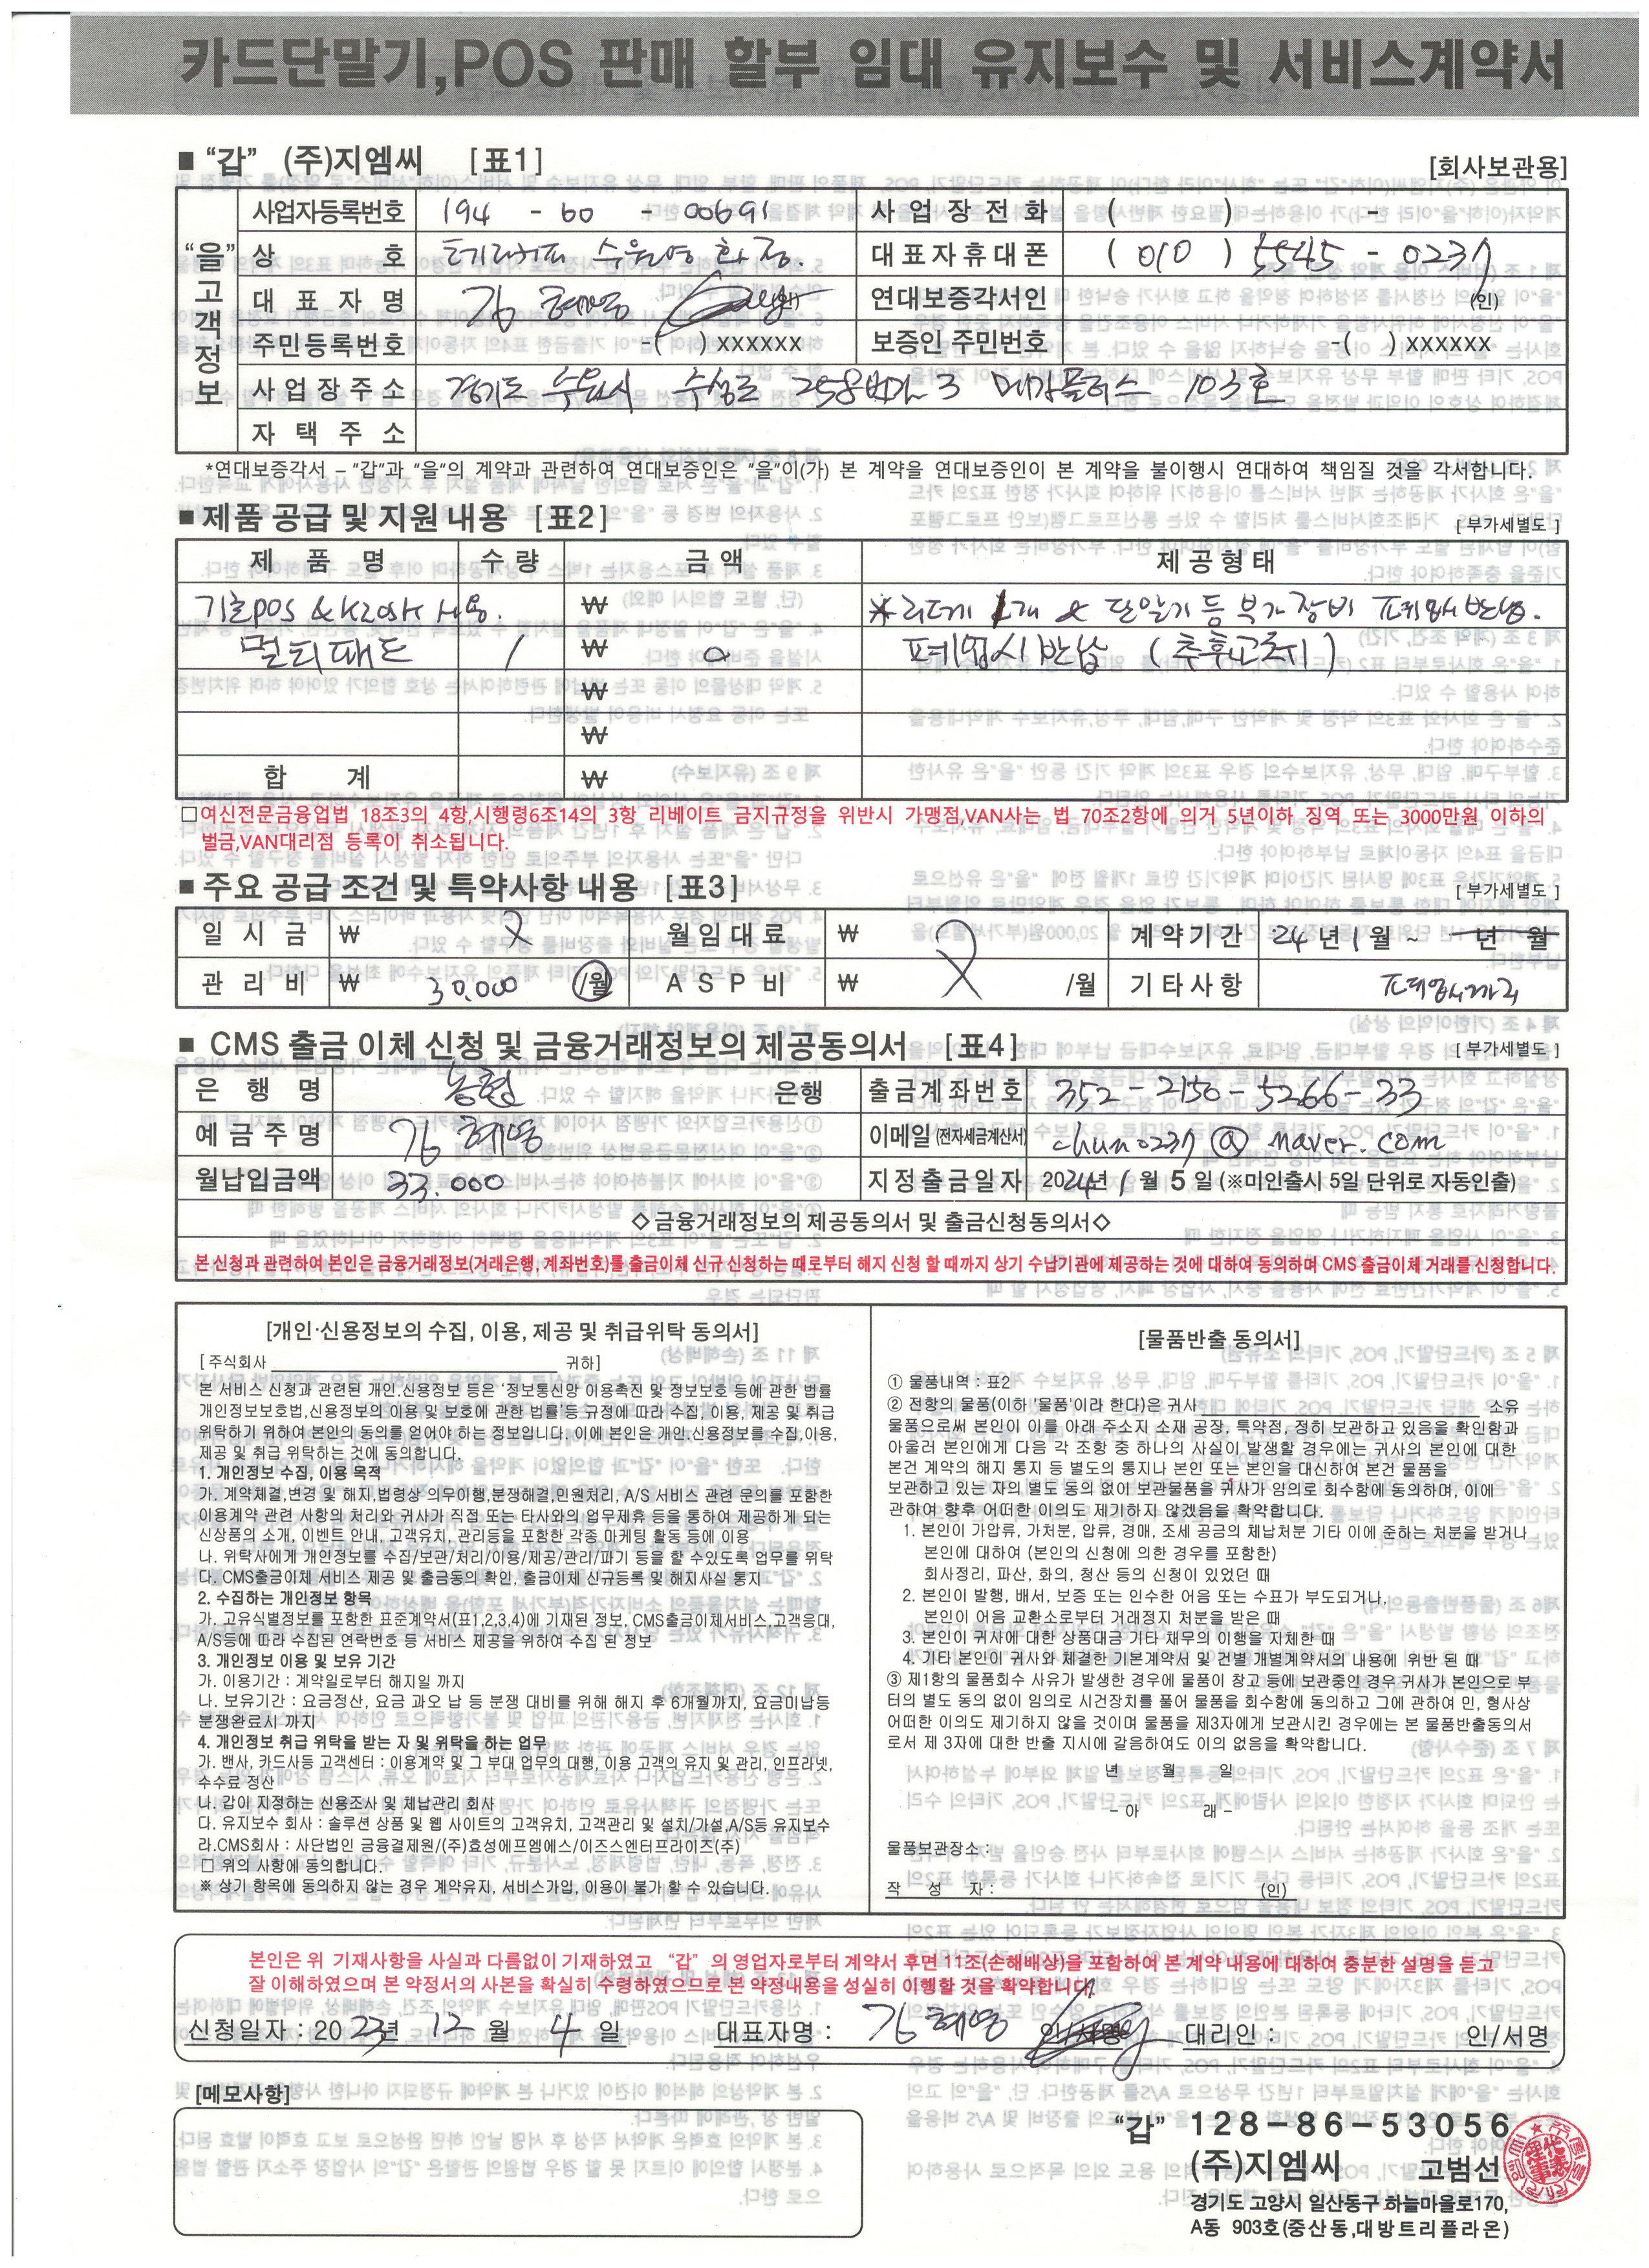 카드단말기,POS 판매 할부 임대 유지보수 및 서비스계약서
■ “갑” (주)지엠씨 [표1]
[회사보관용]
“을” 고객정보
사업자등록번호 194 - 60 - 00691 사업장전화 ( ) -
상 호 수원영화점. 대표자휴대폰 (010) 5545 - 0237
대표자명 김혜영 (인) 연대보증각서인 (인)
주민등록번호 -( )xxxxxx 보증인 주민번호 -( )xxxxxx
사업장주소 경기도 수원시 수성로 258번길 3 메가플러스 103호
자택주소
*연대보증각서 – “갑”과 “을”의 계약과 관련하여 연대보증인은 “을”이(가) 본 계약을 연대보증인이 본 계약을 불이행시 연대하여 책임질 것을 각서합니다.
■ 제품 공급 및 지원 내용 [표2]
[ 부가세별도 ]
제 품 명 수 량 금 액 제공형태
기존pos & kiosk 사용. ₩ ※리더기 1개 & 단말기 등 부가장비 폐업시 반납.
멀티패드 1 ₩ 0 폐업시 반납 (추후고지)
₩
₩
합 계 ₩
□여신전문금융업법 18조3의 4항,시행령6조14의 3항 리베이트 금지규정을 위반시 가맹점,VAN사는 법 70조2항에 의거 5년이하 징역 또는 3000만원 이하의
벌금,VAN대리점 등록이 취소됩니다.
■ 주요 공급 조건 및 특약사항 내용 [표3]
[ 부가세별도 ]
일 시 금 ₩ 월임대료 ₩ 계약기간 24년 1월 ~ 년 월
관 리 비 ₩ 30,000 /월 A S P 비 ₩ /월 기타사항 폐업시까지
■ CMS 출금 이체 신청 및 금융거래정보의 제공동의서 [표4]
[ 부가세별도 ]
은 행 명 농협 은행 출금계좌번호 352-2150-5266-33
예금주명 김혜영 이메일(전자세금계산서) chun0237@naver.com
월납입금액 33.000 지정출금일자 2024년 1월 5일 (※미인출시 5일 단위로 자동인출)
◇금융거래정보의 제공동의서 및 출금신청동의서◇
본 신청과 관련하여 본인은 금융거래정보(거래은행, 계좌번호)를 출금이체 신규 신청하는 때로부터 해지 신청 할 때까지 상기 수납기관에 제공하는 것에 대하여 동의하며 CMS 출금이체 거래를 신청합니다.
[개인·신용정보의 수집, 이용, 제공 및 취급위탁 동의서]
[주식회사 귀하]
본 서비스 신청과 관련된 개인.신용정보 등은 ‘정보통신망 이용촉진 및 정보보호 등에 관한 법률
개인정보보호법,신용정보의 이용 및 보호에 관한 법률’등 규정에 따라 수집, 이용, 제공 및 취급
위탁하기 위하여 본인의 동의를 얻어야 하는 정보입니다. 이에 본인은 개인.신용정보를 수집,이용,
제공 및 취급 위탁하는 것에 동의합니다.
1. 개인정보 수집, 이용 목적
가. 계약체결,변경 및 해지,법령상 의무이행,분쟁해결,민원처리, A/S 서비스 관련 문의를 포함한
이용계약 관련 사항의 처리와 귀사가 직접 또는 타사와의 업무제휴 등을 통하여 제공하게 되는
신상품의 소개, 이벤트 안내, 고객유치, 관리등을 포함한 각종 마케팅 활동 등에 이용
나. 위탁사에게 개인정보를 수집/보관/처리/이용/제공/관리/파기 등을 할 수있도록 업무를 위탁
다. CMS출금이체 서비스 제공 및 출금동의 확인, 출금이체 신규등록 및 해지사실 통지
2. 수집하는 개인정보 항목
가. 고유식별정보를 포함한 표준계약서(표1,2,3,4)에 기재된 정보, CMS출금이체서비스,고객응대,
A/S등에 따라 수집된 연락번호 등 서비스 제공을 위하여 수집 된 정보
3. 개인정보 이용 및 보유 기간
가. 이용기간 : 계약일로부터 해지일 까지
나. 보유기간 : 요금정산, 요금 과오 납 등 분쟁 대비를 위해 해지 후 6개월까지, 요금미납등
분쟁완료시 까지
4. 개인정보 취급 위탁을 받는 자 및 위탁을 하는 업무
가. 밴사, 카드사등 고객센터 : 이용계약 및 그 부대 업무의 대행, 이용 고객의 유지 및 관리, 인프라넷,
수수료 정산
나. 갑이 지정하는 신용조사 및 체납관리 회사
다. 유지보수 회사 : 솔루션 상품 및 웹 사이트의 고객유치, 고객관리 및 설치/가설,A/S등 유지보수
라.CMS회사 : 사단법인 금융결제원/(주)효성에프엠에스/이즈스엔터프라이즈(주)
□ 위의 사항에 동의합니다.
※ 상기 항목에 동의하지 않는 경우 계약유지, 서비스가입, 이용이 불가 할 수 있습니다.
[물품반출 동의서]
① 물품내역 : 표2
② 전항의 물품(이하 ‘물품’이라 한다)은 귀사 소유
물품으로써 본인이 이를 아래 주소지 소재 공장, 특약점, 정히 보관하고 있음을 확인함과
아울러 본인에게 다음 각 조항 중 하나의 사실이 발생할 경우에는 귀사의 본인에 대한
본건 계약의 해지 통지 등 별도의 통지나 본인 또는 본인을 대신하여 본건 물품을
보관하고 있는 자의 별도 동의 없이 보관물품을 귀사가 임의로 회수함에 동의하며, 이에
관하여 향후 어떠한 이의도 제기하지 않겠음을 확약합니다.
1. 본인이 가압류, 가처분, 압류, 경매, 조세 공금의 체납처분 기타 이에 준하는 처분을 받거나
본인에 대하여 (본인의 신청에 의한 경우를 포함한)
회사정리, 파산, 화의, 청산 등의 신청이 있었던 때
2. 본인이 발행, 배서, 보증 또는 인수한 어음 또는 수표가 부도되거나,
본인이 어음 교환소로부터 거래정지 처분을 받은 때
3. 본인이 귀사에 대한 상품대금 기타 채무의 이행을 지체한 때
4. 기타 본인이 귀사와 체결한 기본계약서 및 건별 개별계약서의 내용에 위반 된 때
③ 제1항의 물품회수 사유가 발생한 경우에 물품이 창고 등에 보관중인 경우 귀사가 본인으로 부
터의 별도 동의 없이 임의로 시건장치를 풀어 물품을 회수함에 동의하고 그에 관하여 민, 형사상
어떠한 이의도 제기하지 않을 것이며 물품을 제3자에게 보관시킨 경우에는 본 물품반출동의서
로서 제 3자에 대한 반출 지시에 갈음하여도 이의 없음을 확약합니다.
년 월 일
- 아 래 -
물품보관장소 :
작 성 자 : (인)
본인은 위 기재사항을 사실과 다름없이 기재하였고 “갑” 의 영업자로부터 계약서 후면 11조(손해배상)을 포함하여 본 계약 내용에 대하여 충분한 설명을 듣고
잘 이해하였으며 본 약정서의 사본을 확실히 수령하였으므로 본 약정내용을 성실히 이행할 것을 확약합니다.
신청일자 : 2023년 12월 4일 대표자명 : 김혜영 인/서명 대리인 : 인/서명
[메모사항]
“갑” 128-86-53056
(주)지엠씨 고범선
경기도 고양시 일산동구 하늘마을로170,
A동 903호(중산동,대방트리플라온)